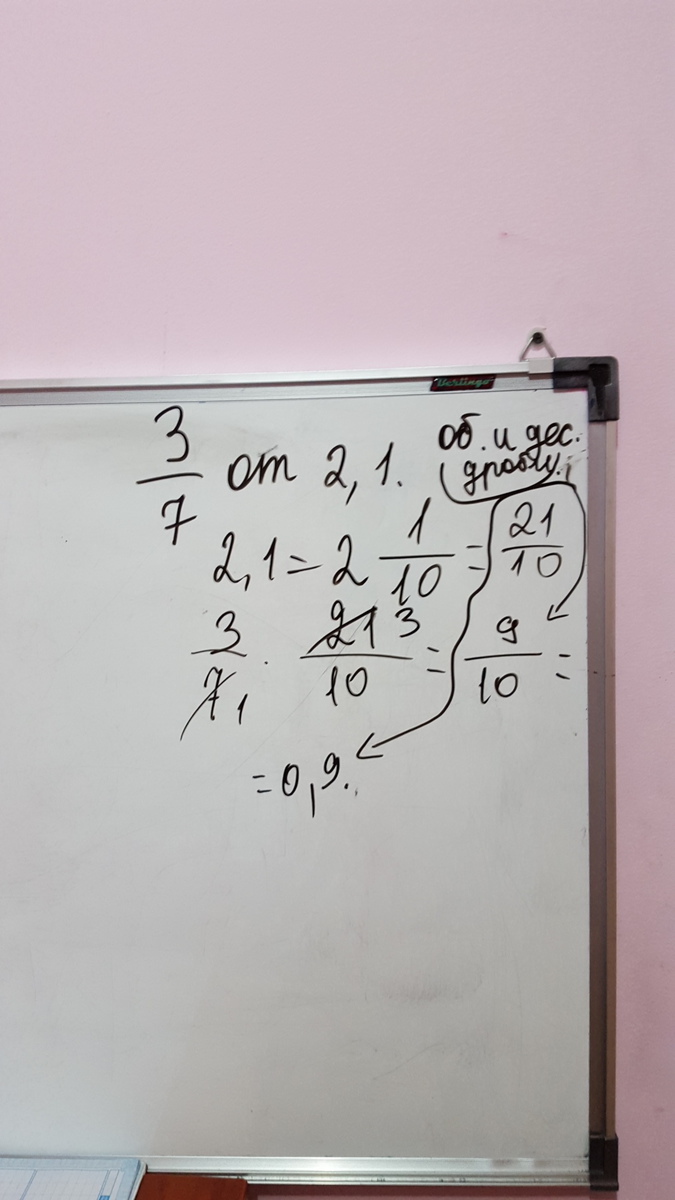 Berlingo
3/7 от 2,1. об. и дес.
дробью.
2,1 = 2 1/10 = 21/10
3/7 1 · 21 3/10 = 9/10 =
= 0,9.